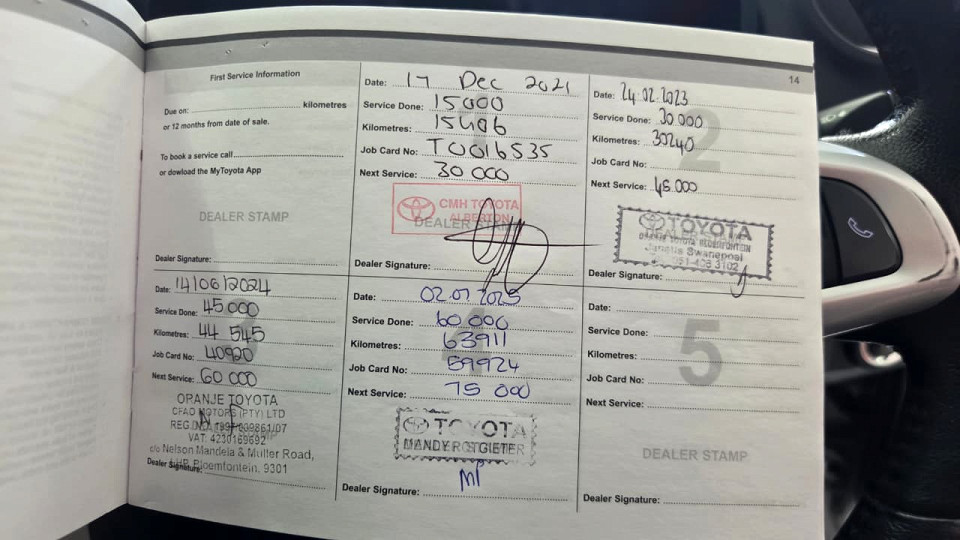 14
First Service Information
Due on: kilometres
or 12 months from date of sale.
To book a service call
or dowload the MyToyota App
DEALER STAMP
Dealer Signature:
Date: 17 Dec 2021
Service Done: 15000
Kilometres: 15406
Job Card No: T0016535
Next Service: 30 000
CMH TOYOTA
ALBERTON
DEALER STAMP
Dealer Signature:
2
Date: 24.02.2023
Service Done: 30 000
Kilometres: 30240
Job Card No:
Next Service: 45 000
TOYOTA
Swanepoel
3102
Dealer Signature:
Date: 14/06/2024
Service Done: 45 000
Kilometres: 44 545
Job Card No: 40920
Next Service: 60 000
ORANJE TOYOTA
CFAO MOTORS (PTY) LTD
VAT: 4230169692
c/o Nelson Mandela & Muller Road,
Bloemfontein, 9301
Dealer Signature:
4
Date: 02.07.2025
Service Done: 60 000
Kilometres: 63911
Job Card No: 59924
Next Service: 75 000
TOYOTA
Dealer Signature:
5
Date:
Service Done:
Kilometres:
Job Card No:
Next Service:
DEALER STAMP
Dealer Signature: